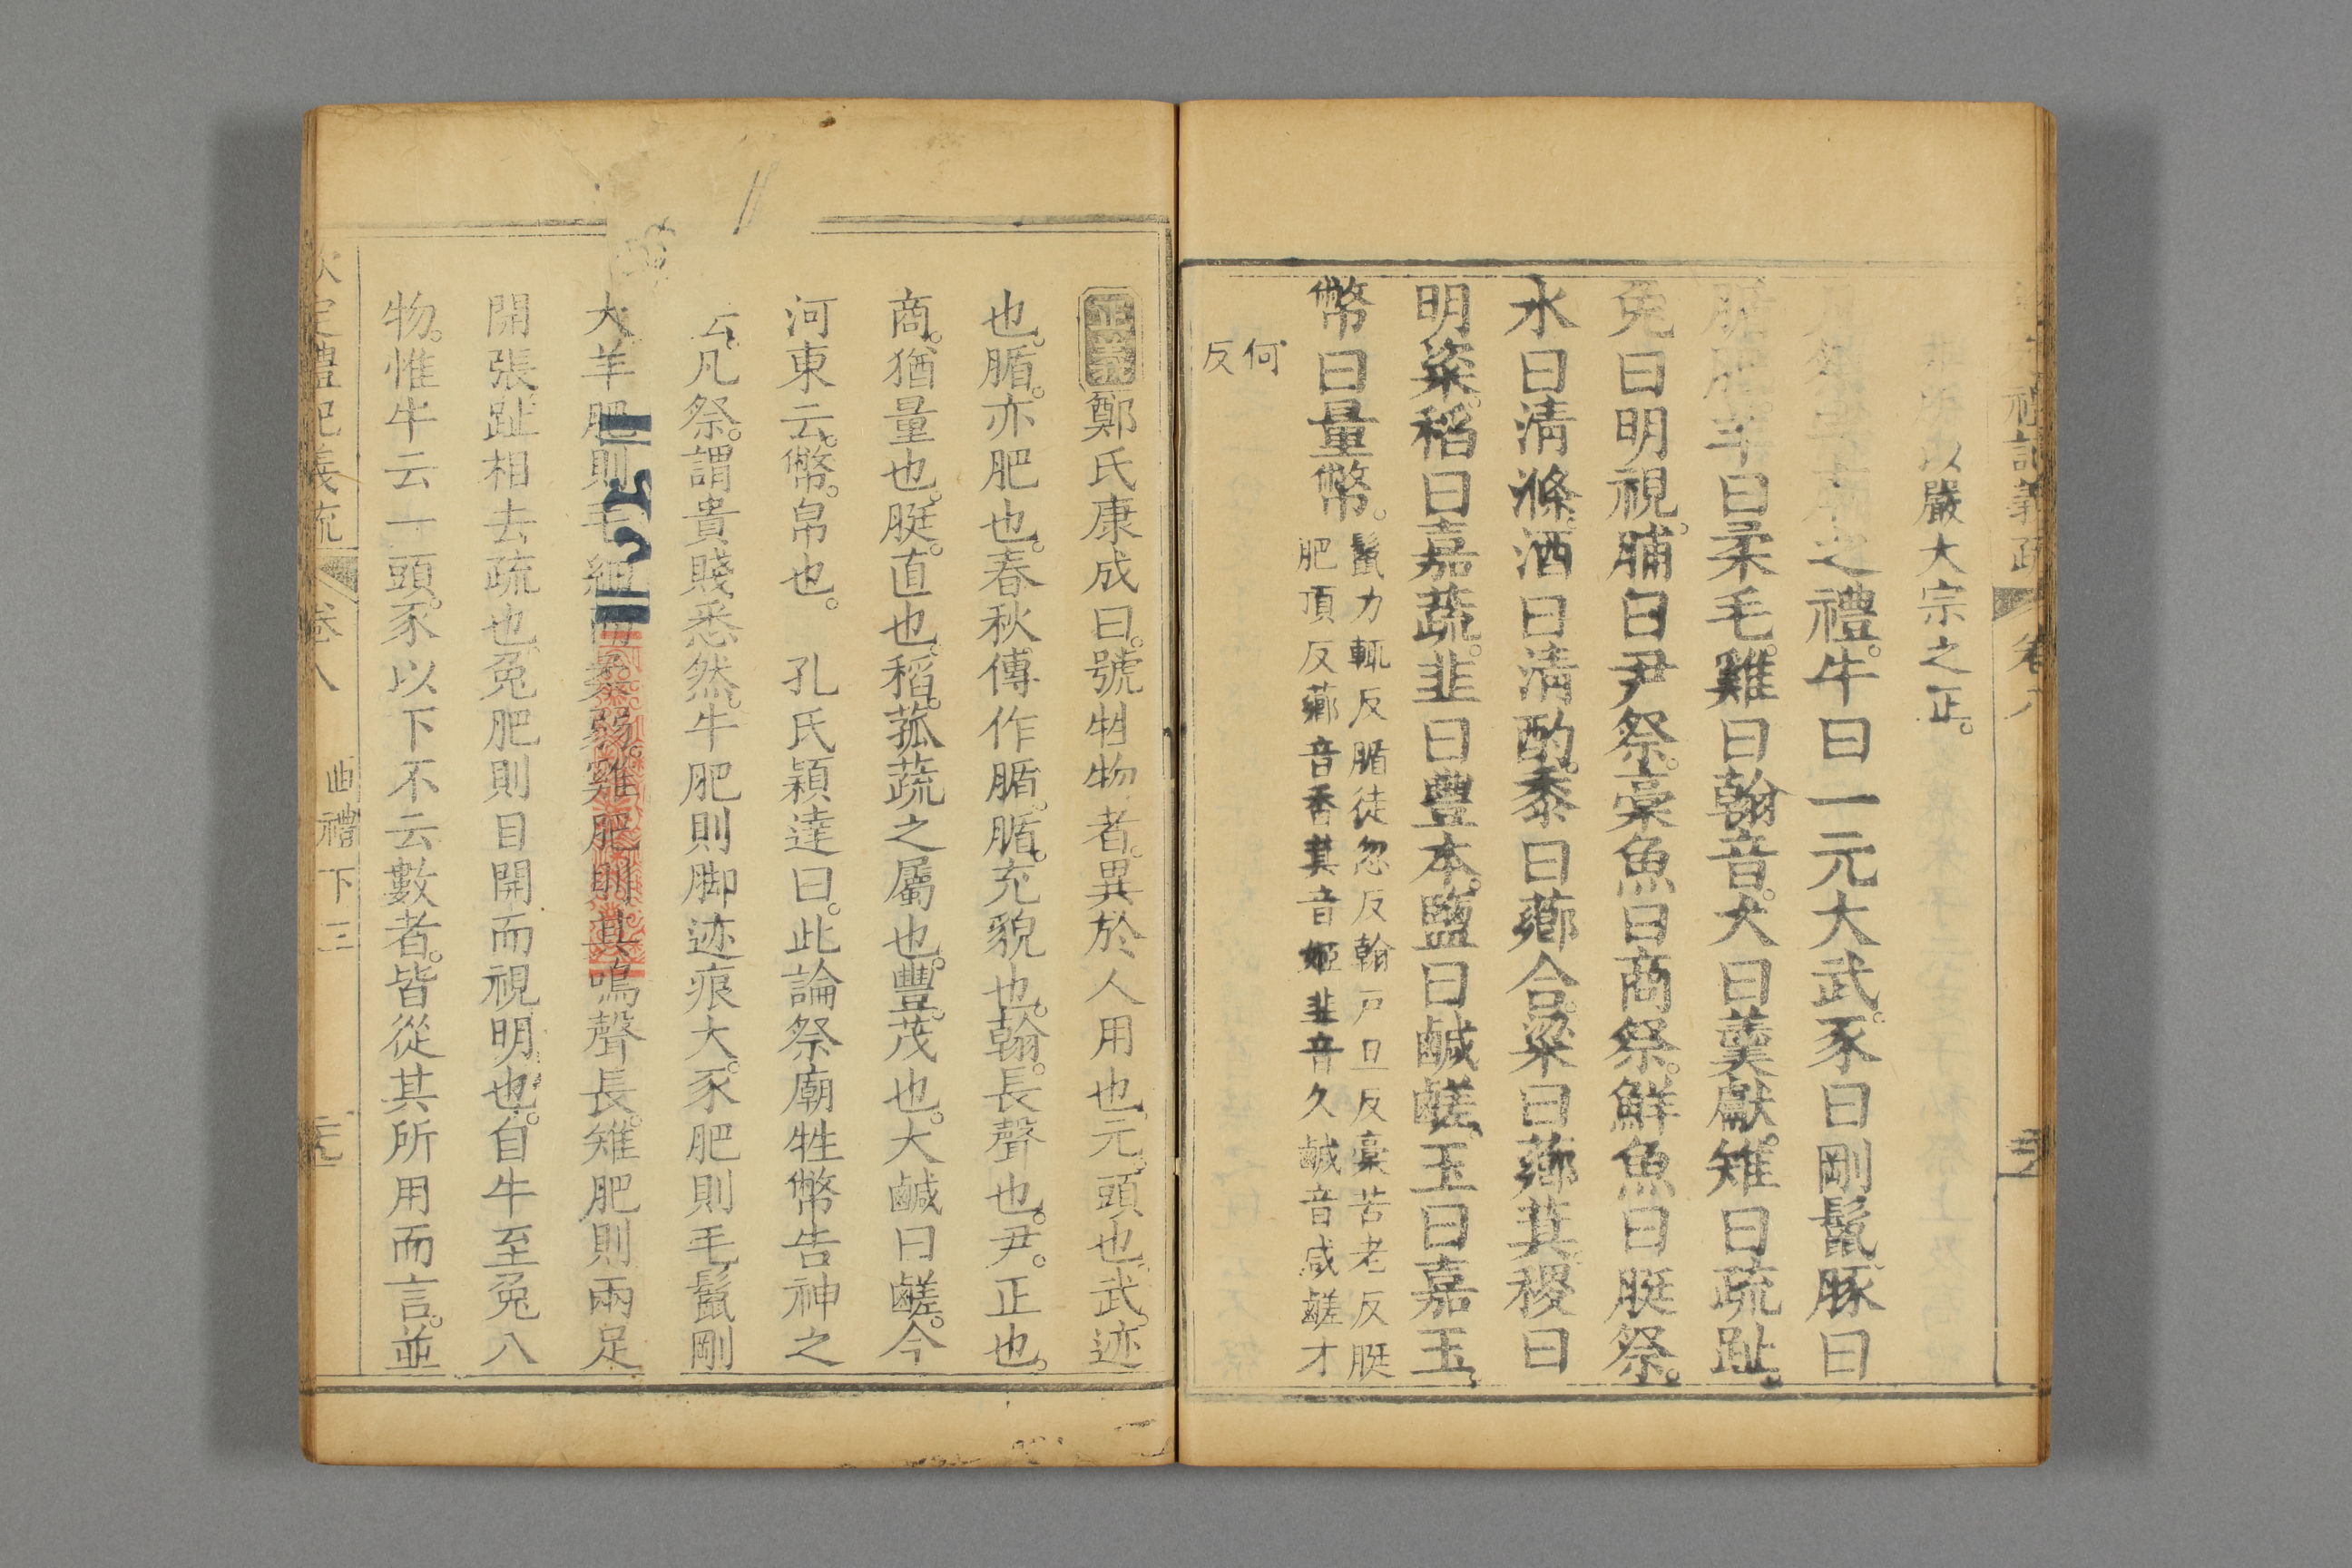 禮記義疏 卷八
以嚴大宗之正。
之禮。牛曰一元大武。豕曰剛鬣。豚曰
腯肥。羊曰柔毛。雞曰翰音。犬曰羹獻。雉曰疏趾。
兔曰明視。脯曰尹祭。槀魚曰商祭。鮮魚曰脡祭。
水曰清滌。酒曰清酌。黍曰薌合。粱曰薌萁。稷曰
明粢。稻曰嘉蔬。韭曰豐本。鹽曰鹹鹺。玉曰嘉玉。
幣曰量幣。
鬣力輒反腯徒忽反翰戸旦反槀苦老反脡
肥頂反薌音香萁音姬韭音久鹹音咸鹺才
何
反
正義鄭氏康成曰。號牲物者。異於人用也。元。頭也。武。迹
也。腯。亦肥也。春秋傳作腯。腯。充貌也。翰。長聲也。尹。正也。
商。猶量也。脡。直也。稻。菰蔬之屬也。豐。茂也。大鹹曰鹺。今
河東云。幣。帛也。 孔氏穎達曰。此論祭廟牲幣告神之
凡祭。謂貴賤悉然。牛肥則脚迹痕大。豕肥則毛鬣剛
大。羊肥則毛細而柔弱。雞肥則其鳴聲長。雉肥則兩足
開張。趾相去疏也。兔肥則目開而視明也。自牛至兔八
物。惟牛云一頭。豕以下不云數者。皆從其所用而言。並
定禮記義疏 卷八 曲禮下三